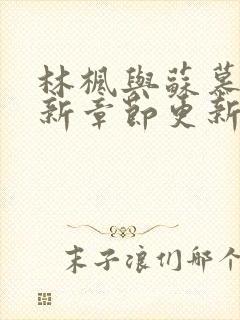 林楓與蘇慕
新章節更新
末子浪們那个